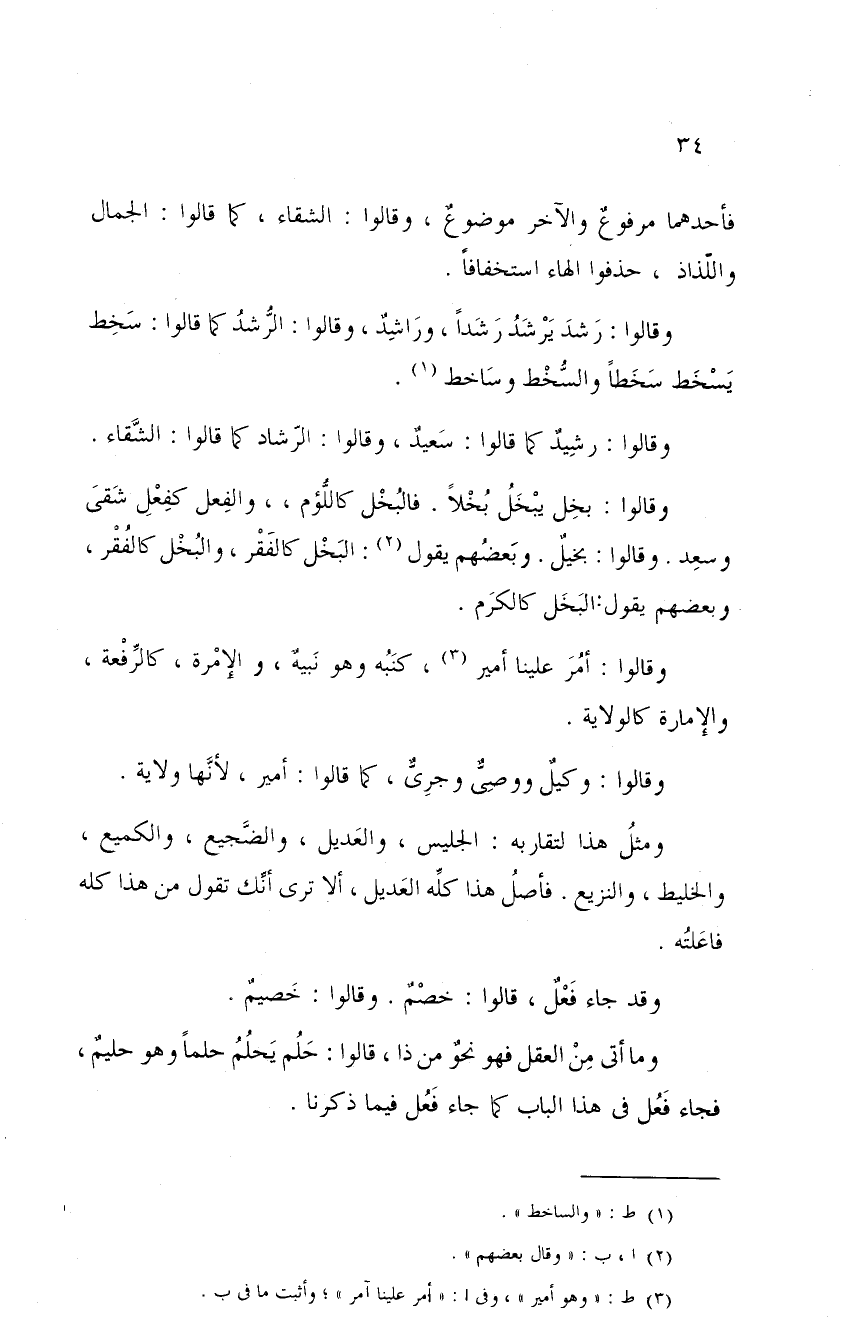 ٣٤
فأحدهما مرفوعٌ والآخر موضوعٌ ، وقالوا : الشقاء ، كما قالوا : الجمال
واللَّذاذ ، حذفوا الهاء استخفافاً .
وقالوا : رَشدَ يَرْشَدُ رَشَداً ، ورَاشِدٌ ، وقالوا : الرُّشدُ كما قالوا : سَخِط
يَسْخَط سَخَطاً والسُّخْط وسَاخط (١) .
وقالوا : رشِيدٌ كما قالوا : سَعيدٌ ، وقالوا : الرَشاد كما قالوا : الشَّقاء .
وقالوا : بخِل يبْخَلُ بُخْلاً . فالبُخْل كاللُّؤم ، ، والفِعل كفِعْلِ شَقىَ
وسعِد . وقالوا : بخيلٌ . وبَعضُهم يقول (٢) : البَخْل كالفَقْر ، والبُخْل كالفُقْر ،
وبعضهم يقول : البَخَل كالكَرَم .
وقالوا : أمُرَ علينا أمير (٣) ، كنَبُه وهو نَبيهٌ ، و الإِمْرة ، كالرِّفْعة ،
والإِمارة كالولاية .
وقالوا : وكيلٌ ووصِىٌّ وجرِىٌّ ، كما قالوا : أمير ، لأنَّها ولاية .
ومثلُ هذا لتقاربه : الجليس ، والعَديل ، والضَّجيع ، والكميع ،
والخليط ، والنزيع . فأصلُ هذا كلِّه العَديل ، ألا ترى أنَّك تقول من هذا كله
فاعَلتُه .
وقد جاء فَعْلٌ ، قالوا : خصْمٌ . وقالوا : خَصيمٌ .
وما أتى مِنْ العقل فهو نحوٌ من ذا ، قالوا : حَلُم يَحلُمُ حلماً وهو حليمٌ ،
فجاء فَعُل فى هذا الباب كما جاء فَعُل فيما ذكرنا .
(١) ط : « والساخط » .
(٢) ا ، ب : « وقال بعضهم » .
(٣) ط : « وهو أمير » ، وفى ا : « أمر علينا آمر » ؛ وأثبت ما فى ب .